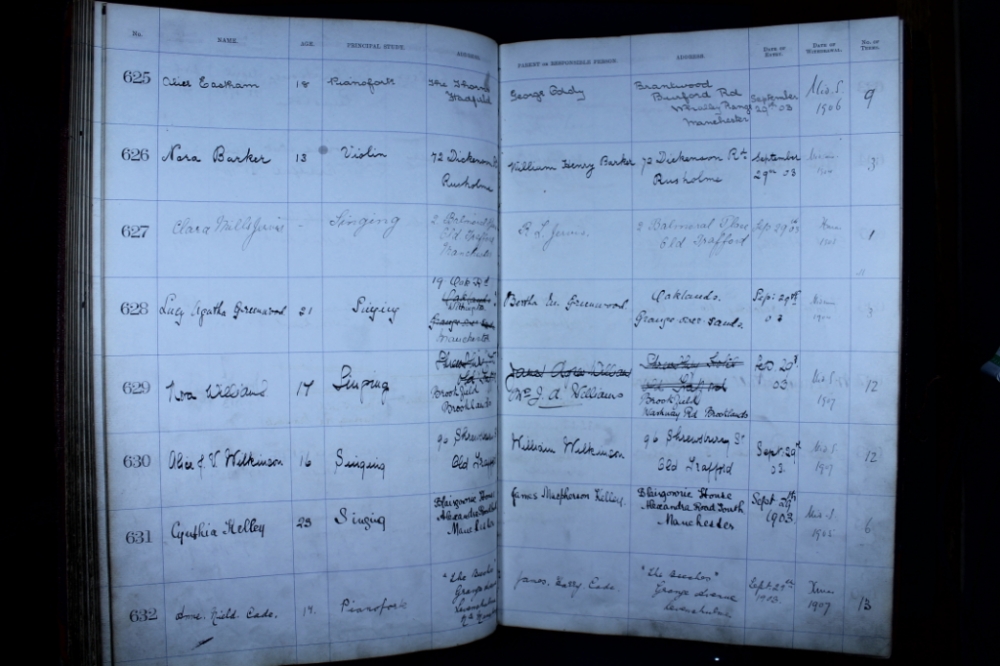 No. NAME. AGE. PRINCIPAL STUDY. ADDRESS. PARENT OR RESPONSIBLE PERSON. ADDRESS. DATE OF ENTRY. DATE OF WITHDRAWAL. NO. OF TERMS.
625 Eastham 18 Pianoforte The Thorns George Brantwood September 29th 03 Mid. S. 1906 9
Burford Rd
Whalley Range
Manchester
626 Nora Barker 13 Violin 72 Dickenson William Henry Barker 72 Dickenson Rd September 29th 03 3
Rusholme Rusholme
627 Clara Mills Jervis - Singing 2 Balmoral R. L. Jervis. 2 Balmoral Place Sep 29th 03 Xmas 1
Old Trafford Old Trafford
Manchester
628 Lucy Agatha Greenwood 21 Singing 19 Oak Bertha M. Greenwood Oaklands. Sept: 29th 03 3
Grange over Sands.
Manchester
629 Williams 17 Singing James Williams 03 Mid S. 1907 12
Old Trafford
Brookfield Mrs J. A. Williams Brookfield
Brooklands Rd Brooklands
630 Alice J. V. Wilkinson 16 Singing 96 Shrewsbury William Wilkinson 96 Shrewsbury St Sept. 29th 03 Mid. S 1907 12
Old Trafford Old Trafford
631 Cynthia Kelley 23 Singing Blairgowrie House James Macpherson Kelley. Blairgowrie House Sept 29th 1903 Mid. S. 1905 6
Alexandra Road South Alexandra Road South
Manchester Manchester
632 Field. Eade. 19. Pianoforte "The Beeches" James. Harry. Eade "The Beeches" Sept 29th 1903. Xmas 1907 13
Grange Avenue Grange Avenue
Levenshulme Levenshulme